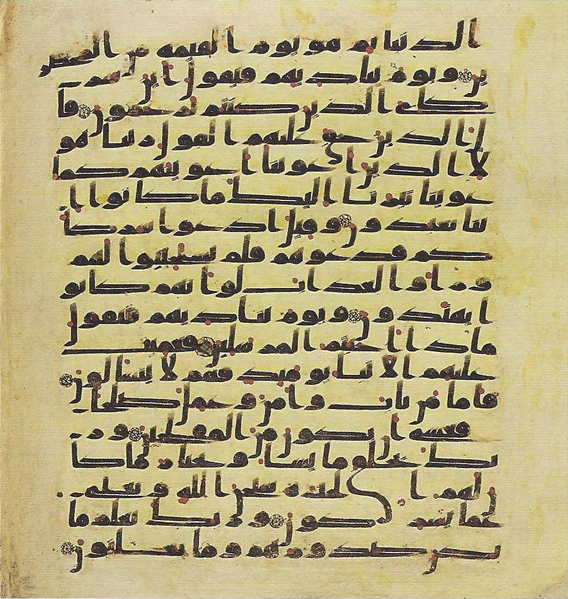 الدنيا ثم هو يوم القيمة من المحضر
ين ويوم يناديهم فيقول اين شر
كاى الذين كنتم تزعمون قا
ل الذين حق عليهم القول ربنا هو
لا الذين اغوينا اغوينهم كما
غوينا تبرانا اليك ما كانوا ا
يانا يعبدون وقيل ادعوا شركا
كم فدعوهم فلم يستجيبوا لهم
وراوا العذاب لو انهم كانو
ا يهتدون ويوم يناديهم فيقول
ماذا اجبتم المرسلين فعميت
عليهم الانبا يومئذ فهم لا يتسالون
فاما من تاب وامن وعمل صلحا
فعسى ان يكون من المفلحين ور
بك يخلق ما يشا ويختار ما كا
ن لهم الخيرة سبحن الله وتعلى
عما يشركون وربك يعلم ما
تكن صدورهم وما يعلنون